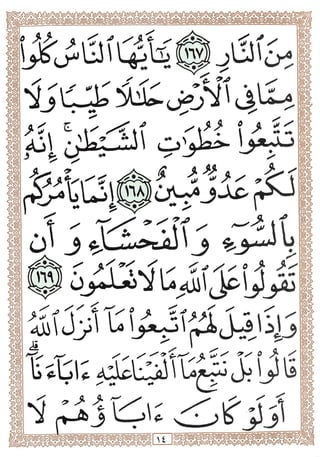 مِنَ ٱلنَّارِ ١٦٧ يَٰٓأَيُّهَا ٱلنَّاسُ كُلُوا۟
مِمَّا فِى ٱلْأَرْضِ حَلَٰلًا طَيِّبًا وَلَا
تَتَّبِعُوا۟ خُطُوَٰتِ ٱلشَّيْطَٰنِ ۚ إِنَّهُۥ
لَكُمْ عَدُوٌّ مُّبِينٌ ١٦٨ إِنَّمَا يَأْمُرُكُم
بِٱلسُّوٓءِ وَٱلْفَحْشَآءِ وَأَن
تَقُولُوا۟ عَلَى ٱللَّهِ مَا لَا تَعْلَمُونَ ١٦٩
وَإِذَا قِيلَ لَهُمُ ٱتَّبِعُوا۟ مَآ أَنزَلَ ٱللَّهُ
قَالُوا۟ بَلْ نَتَّبِعُ مَآ أَلْفَيْنَا عَلَيْهِ ءَابَآءَنَآ ۗ
أَوَلَوْ كَانَ ءَابَآؤُهُمْ لَا
١٤